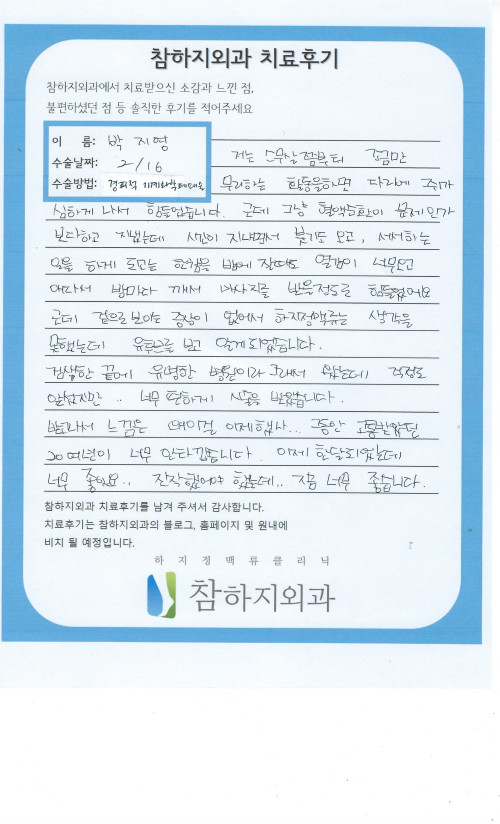 참하지외과 치료후기
참하지외과에서 치료받으신 소감과 느낀 점,
불편하셨던 점 등 솔직한 후기를 적어주세요
이 름: 박지영
수술날짜: 2/16
수술방법: 경피적 기계화학폐쇄술
저는 스무살쯤부터 조금만
무리하는 활동을하면 다리에 쥐가
심하게 나서 힘들었습니다. 근데 그냥 혈액순환이 문제인가
보다하고 지냈는데 시간이 지나면서 붓기도 오고, 서서하는
일을 하게 되고는 밤에 잘때도 열감이 너무오고
아파서 밤마다 깨서 마사지를 받을정도로 힘들었어요
근데 겉으로 보이는 증상이 없어서 하지정맥류는 생각을
못했는데 유튜브를 보고 알게되었습니다.
검색한 끝에 유명한 병원이라 그래서 왔는데 걱정도
많았지만 .. 너무 편하게 시술을 받았습니다.
받고나서 느낌은 왜이걸 이제했나... 그동안 고통받았던
20여년이 너무 안타깝습니다. 이제 한달되었는데
너무 좋아요.. 진작했어야 했는데.. 정말 너무 좋습니다.
참하지외과 치료후기를 남겨 주셔서 감사합니다.
치료후기는 참하지외과의 블로그, 홈페이지 및 원내에
비치 될 예정입니다.
하지정맥류클리닉
참하지외과